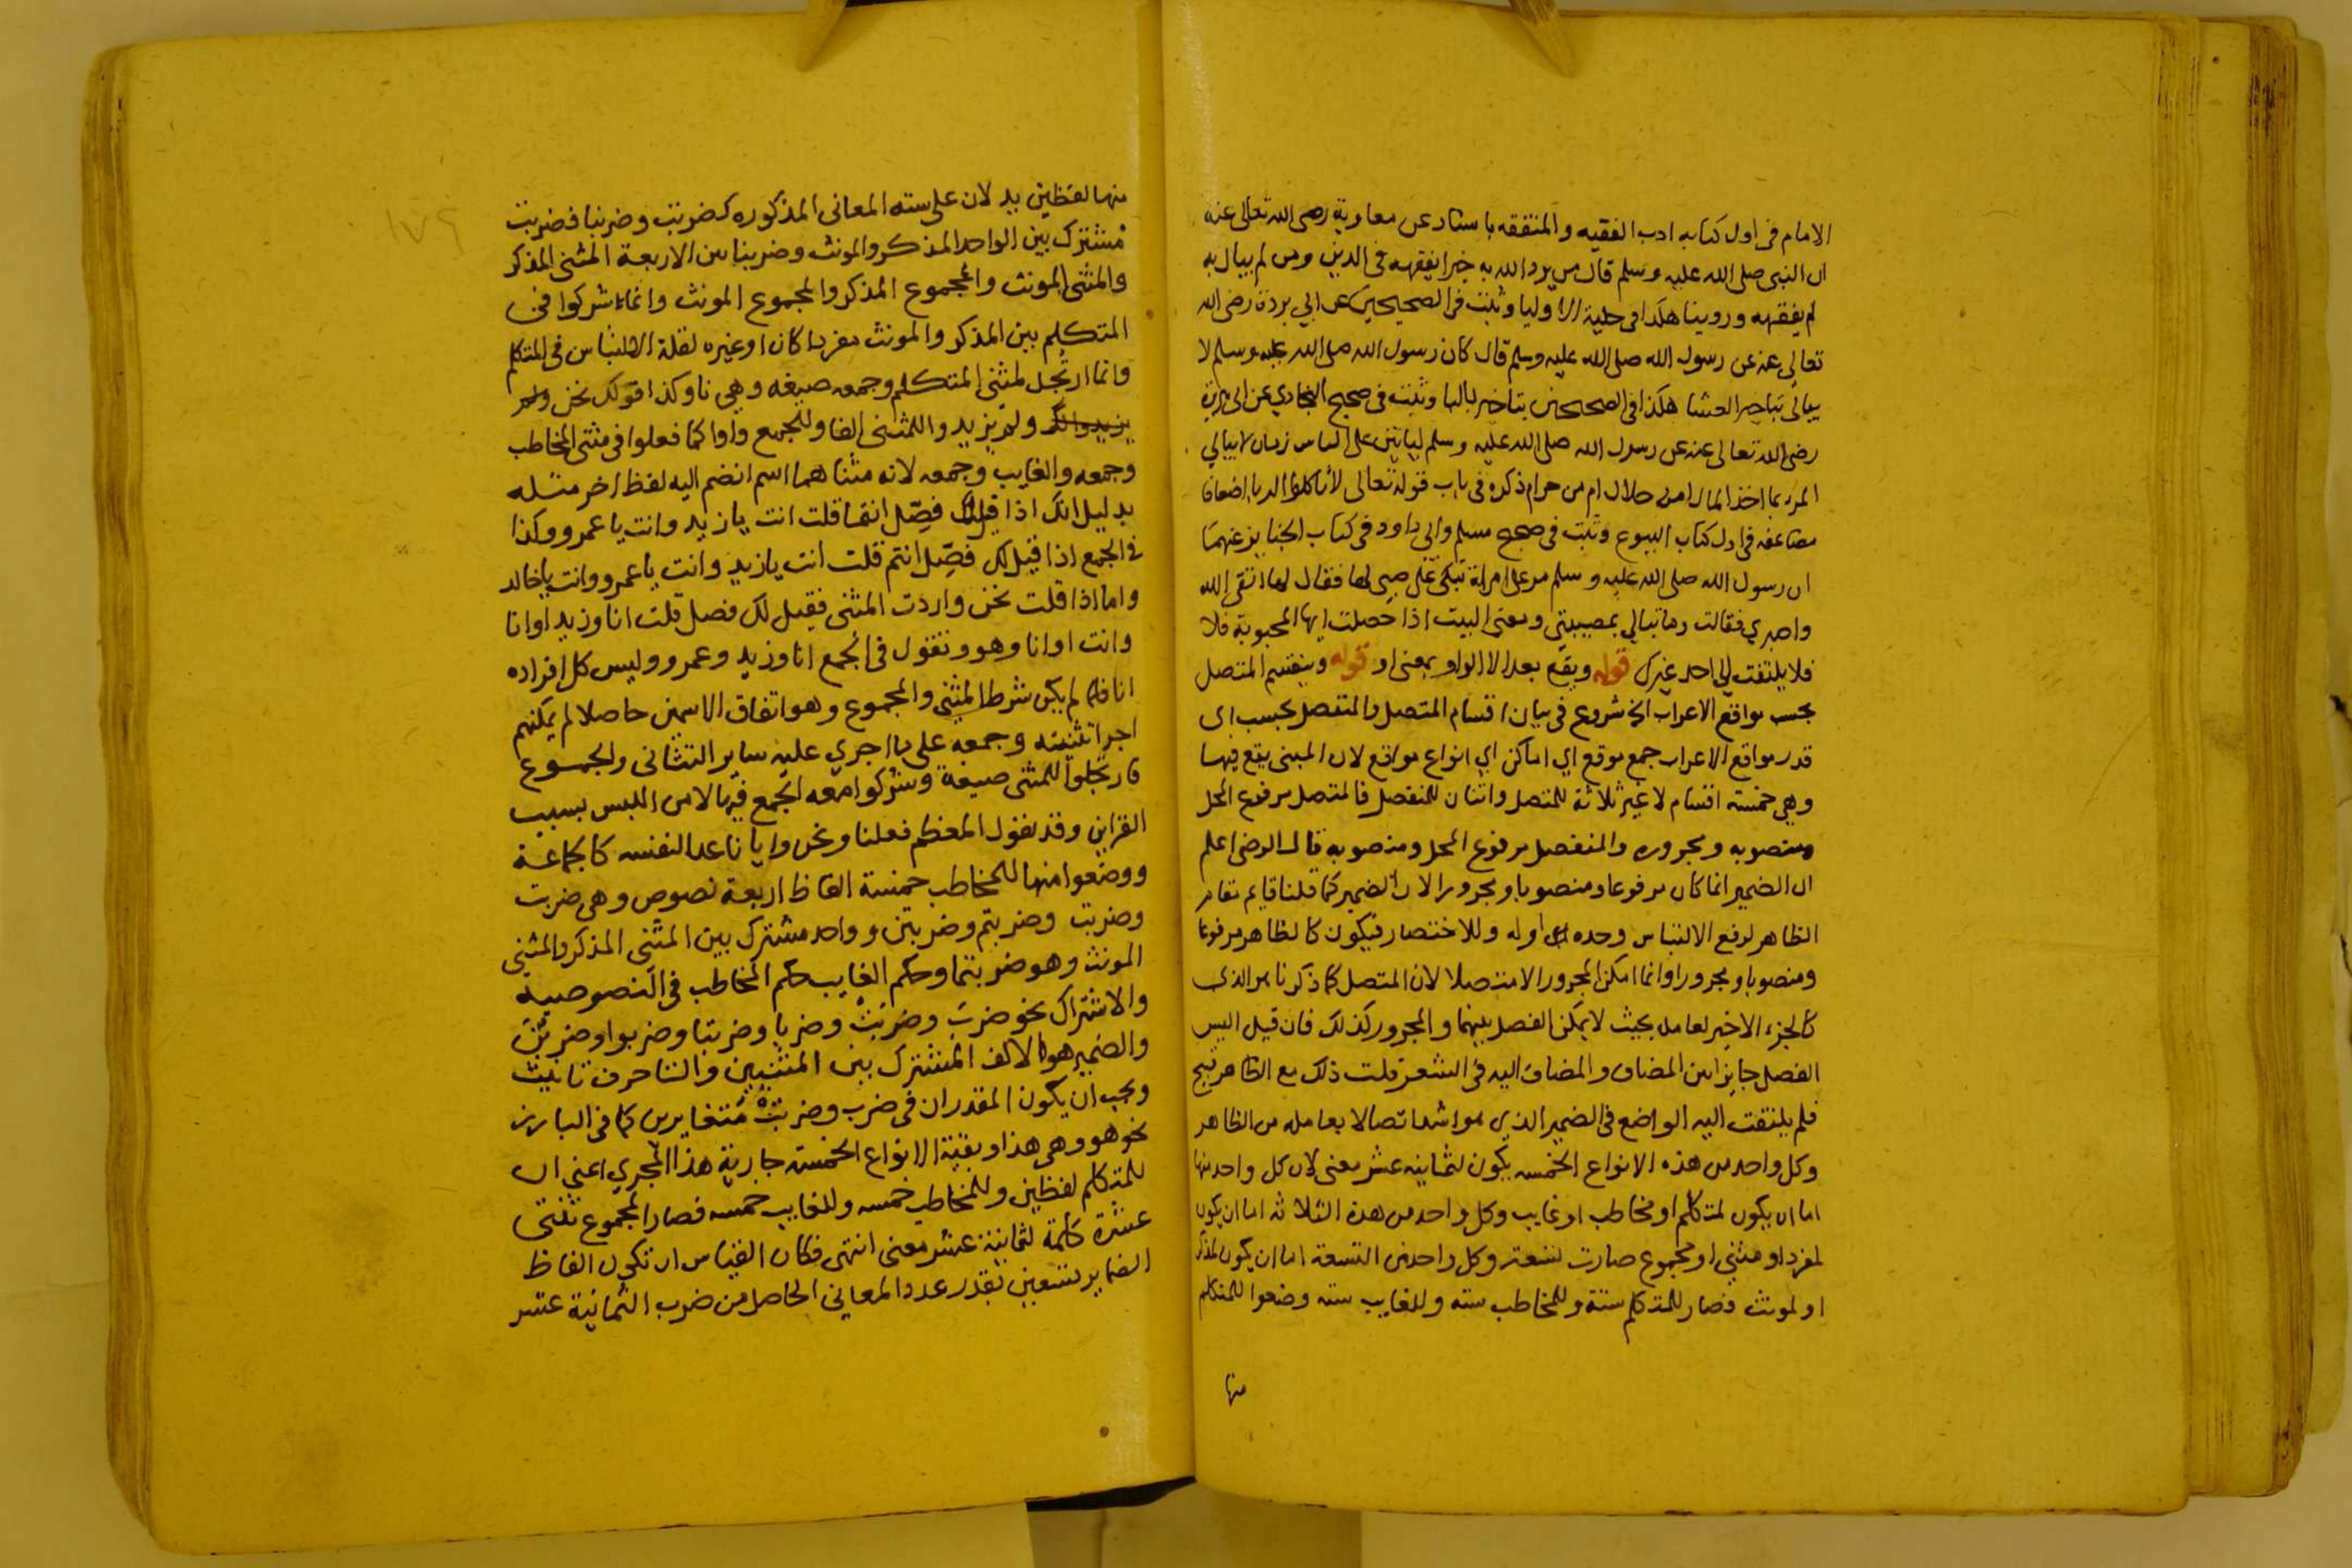 الامام فى اول كتابه ادب الفقيه والمتفقه باسناد عن معاوية رضى الله تعالى عنه
ان النبى صلى الله عليه وسلم قال من يرد الله به خيرا يفقهه فى الدين ومن لم يبال به
لم يفقهه وروينا هكذا فى حلية الاوليا وثبت فى الصحيحين عن ابي بردة رضى الله
تعالى عنه عن رسول الله صلى الله عليه وسلم قال كان رسول الله صلى الله عليه وسلم لا
يبالى بتاخير العشا هكذا فى الصحيحين بتاخير بالبا وثبت فى صحيح البخاري عن ابى هريرة
رضى الله تعالى عنه عن رسول الله صلى الله عليه وسلم لياتين على الناس زمان لا يبالي
المرء بما اخذ المال امن حلال ام من حرام ذكره فى باب قوله تعالى لا تاكلوا الربا اضعافا
مضاعفه فى اول كتاب البيوع وثبت فى صحيح مسلم وابى داود فى كتاب الجنايز عنهما
ان رسول الله صلى الله عليه وسلم مر على امراة تبكى على صبى لها فقال لها اتقى الله
واصبري فقالت وما تبالي بمصيبتي ومعنى البيت اذا حصلت ايها المحبوبة فلا
فلا يلتفت الي احد غيرك قوله ويقع بعد الا الواو بمعنى او قوله وينقسم المتصل
بحسب مواقع الاعراب الخ شروع فى بيان اقسام المتصل والمنفصل بحسب اى
قدر مواقع الاعراب جمع موقع اي اماكن اي انواع مواقع لان المبنى يقع فيها
وهي خمسة اقسام لا غير ثلاثة للمتصل واثنان للمنفصل فالمتصل مرفوع المحل
ومنصوبه ومجروره والمنفصل مرفوع المحل ومنصوبه قال الرضى اعلم
ان الضمير انما كان مرفوعا ومنصوبا ومجرورا لان الضمير كما قلنا قايم مقام
الظاهر لرفع الالتباس وحده او له وللاختصار فيكون كالظاهر مرفوعا
ومنصوبا ومجرورا وانما امكن المجرور الا متصلا لان المتصل كما ذكرنا هو الذى
كالجزء الاخير لعامله بحيث لا يمكن الفصل بينهما والمجرور كذلك فان قيل اليس
الفصل جايزا بين المضاف والمضاف اليه فى الشعر قلت ذلك مع الظاهر قبيح
فلم يلتفت اليه الواضع فى الضمير الذي هو اشد اتصالا بعامله من الظاهر
وكل واحد من هذه الانواع الخمسه يكون لثمانيه عشر معنى لان كل واحد منها
اما ان يكون لمتكلم او مخاطب او غايب وكل واحد من هذه الثلاثه اما ان يكون
لمفرد او مثنى او مجموع صارت تسعة وكل واحد من التسعة اما ان يكون لمذكر
او لمونث فصار للمتكلم ستة وللمخاطب سته وللغايب سته وضعوا للمتكلم
منها
١٧٩
منها لفظين يدلان على سته المعانى المذكوره كضربت وضربنا فضربت
مشترك بين الواحد المذكر والمونث وضربنا بين الاربعة المثنى المذكر
والمثنى المونث والمجموع المذكر والمجموع المونث وانما شركوا فى
المتكلم بين المذكر والمونث مفردا كان او غيره لقلة الالتباس فى المتكلم
وانما ارتجل لمثنى المتكلم وجمعه صيغه وهي نا وكذا قولك نحن ولم
ولم يزيدوا للمثنى الفا وللجمع واوا كما فعلوا فى مثنى المخاطب
وجمعه والغايب وجمعه لانه مثناهما اسم انضم اليه لفظ اخر مثله
بدليل انك اذا قيل لك فصّل انتما قلت انت يا زيد وانت يا عمرو وكذا
فى الجمع اذا قيل لك فصّل انتم قلت انت يا زيد وانت يا عمرو وانت يا خالد
واما اذا قلت نحن واردت المثنى فقيل لك فصل قلت انا وزيد او انا
وانت او انا وهو وتقول فى الجمع انا وزيد وعمرو وليس كل افراده
انا فلما لم يكن شرط المثنى والمجموع وهو اتفاق الاسمين حاصلا لم يمكنهم
اجرا تثنيته وجمعه على ما اجري عليه ساير التثانى والجمـوع
فارتجلوا للمثنى صيغة وشركوا معه الجمع فيها لامن اللبس بسبب
القراين وقد يقول المعظم فعلنا ونحن وايانا عدا لنفسه كالجماعة
ووضعوا منها للمخاطب خمسة الفاظ اربعة نصوص وهى ضربت
وضربت وضربتم وضربتن وواحد مشترك بين المثنى المذكر والمثنى
المونث وهو ضربتما وحكم الغايب حكم المخاطب فى النصوصيه
والاشتراك نحو ضربَ وضربتْ وضربا وضربتا وضربوا وضربن
والضمير هو الالف المشترك بين المثنيين والتا حرف تانيث
ويجب ان يكون المقدران فى ضرب وضربتْ متغايرين كما فى البارز
نحو هو وهى هذا وبقية الانواع الخمسة جارية هذا المجري اعنى ان
للمتكلم لفظين وللمخاطب خمسه وللغايب خمسه فصار المجموع ثنتى
عشرة كلمة لثمانية عشر معنى انتهى فكان القياس ان تكون الفاظ
الضماير تسعين بقدر عدد المعاني الحاصل من ضرب الثمانية عشر